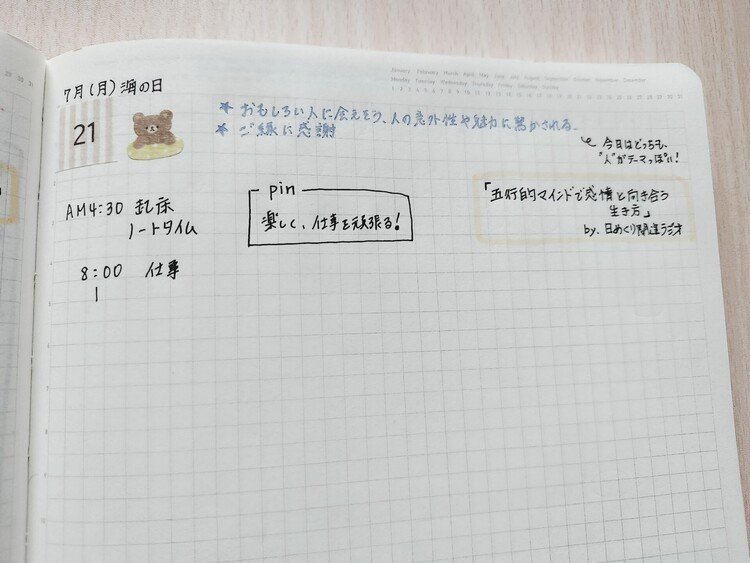 January February March April May June July August September October November December
Monday Tuesday Wednesday Thursday Friday Saturday Sunday
1 2 3 4 5 6 7 8 9 10 11 12 13 14 15 16 17 18 19 20 21 22 23 24 25 26 27 28 29 30 31
7月(月) 海の日
21
★ おもしろい人に会えそう、人の意外性や魅力に驚かされる。
★ ご縁に感謝
今日はどっちも、
"人"がテーマっぽい!
AM4:30 起床
ノートタイム
pin
楽しく、仕事を頑張る!
「五行的マインドで感情と向き合う
生き方」
by. 日めくり開運ラジオ
8:00 仕事
29 30 31